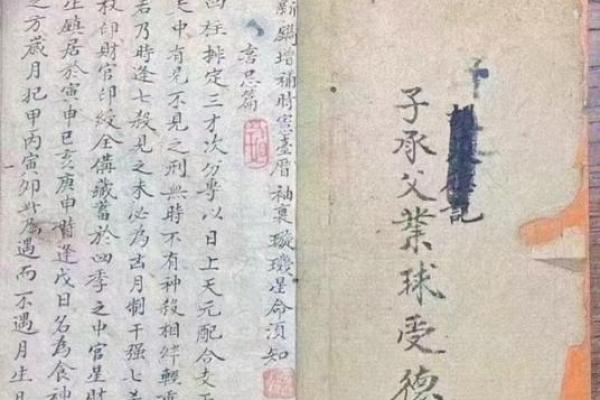 子承父業球受德
子
記
新鐫增補時憲臺曆袖裏璇璣星命須知
喜忌篇
四柱排定三才次分專以日上天元配合支
中有見不見之刑無時不有神殺相絆輕
若乃時逢七殺見之未必為凶月制干强七
印財官印綬全備藏蓄於四季之中官星財
生鎮居於寅申巳亥庚申時逢戊日名為食神
之方歲月犯甲丙寅卯此為遇而不遇月生